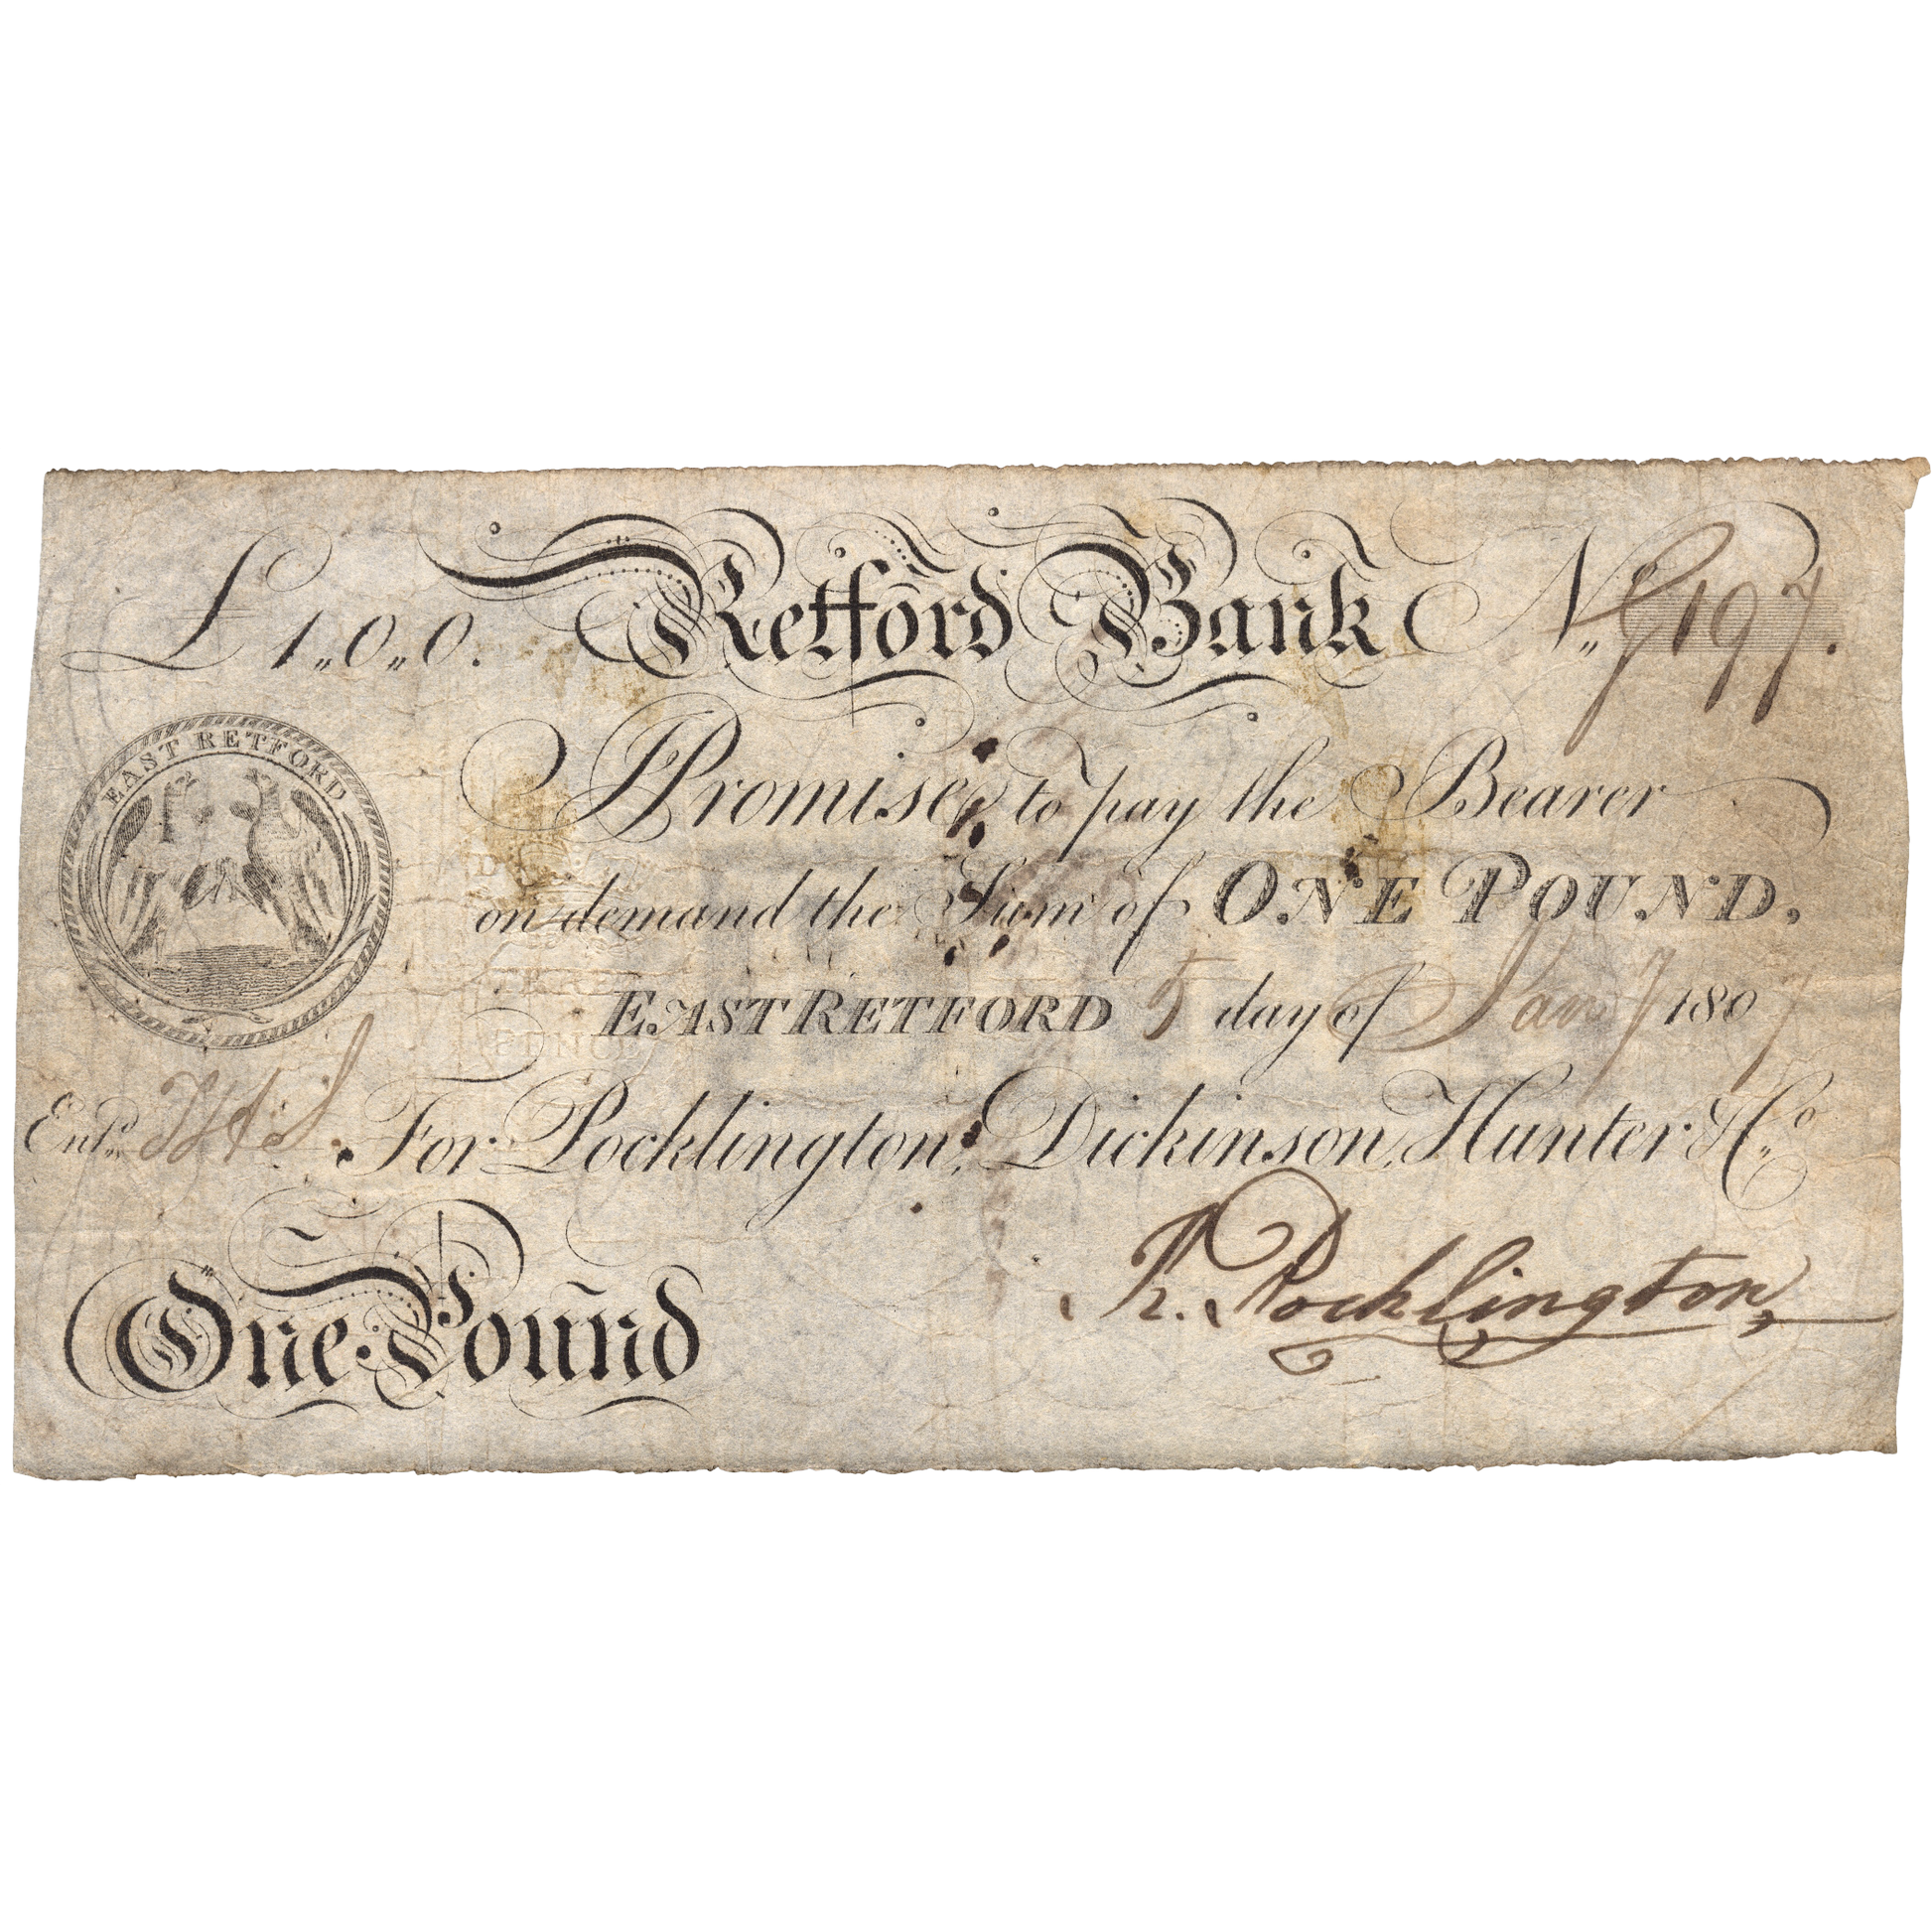 £1„0„0. Retford Bank No. 9197.
EAST RETFORD
I Promise to pay the Bearer
on demand the Sum of ONE POUND,
EAST RETFORD 5 day of Jany 1807
Entd. For Pocklington, Dickinson, Hunter & Co.
One Pound
R. Pocklington